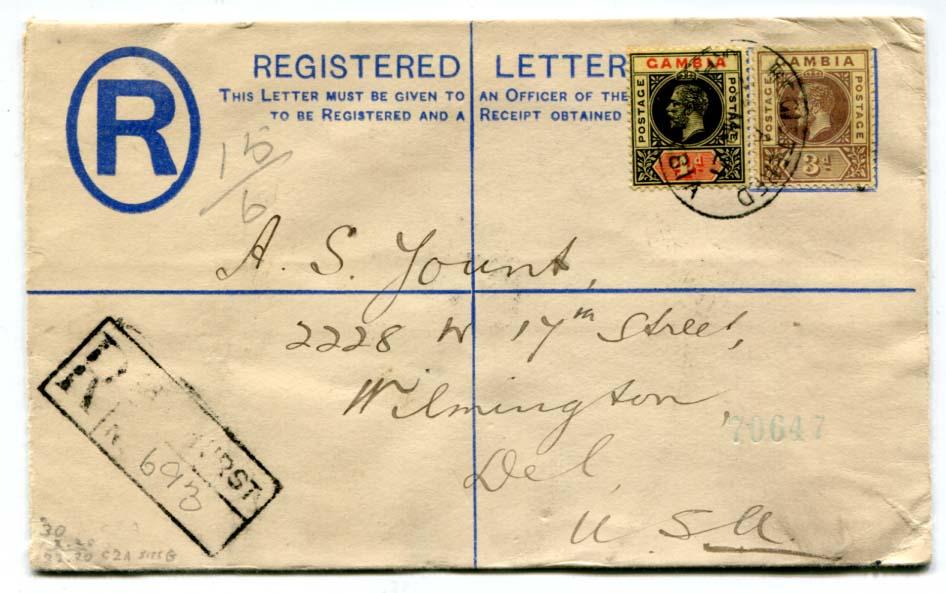 R
REGISTERED LETTER
THIS LETTER MUST BE GIVEN TO AN OFFICER OF THE
TO BE REGISTERED AND A RECEIPT OBTAINED
GAMBIA
POSTAGE POSTAGE
d
GAMBIA
POSTAGE POSTAGE
3d
REGISTERED
15
6
A. S. Yount,
2228 W 17th Street,
Wilmington
Del,
U.S.A.
70647
R
HURST
693
30
22.20 C2A SIZE G